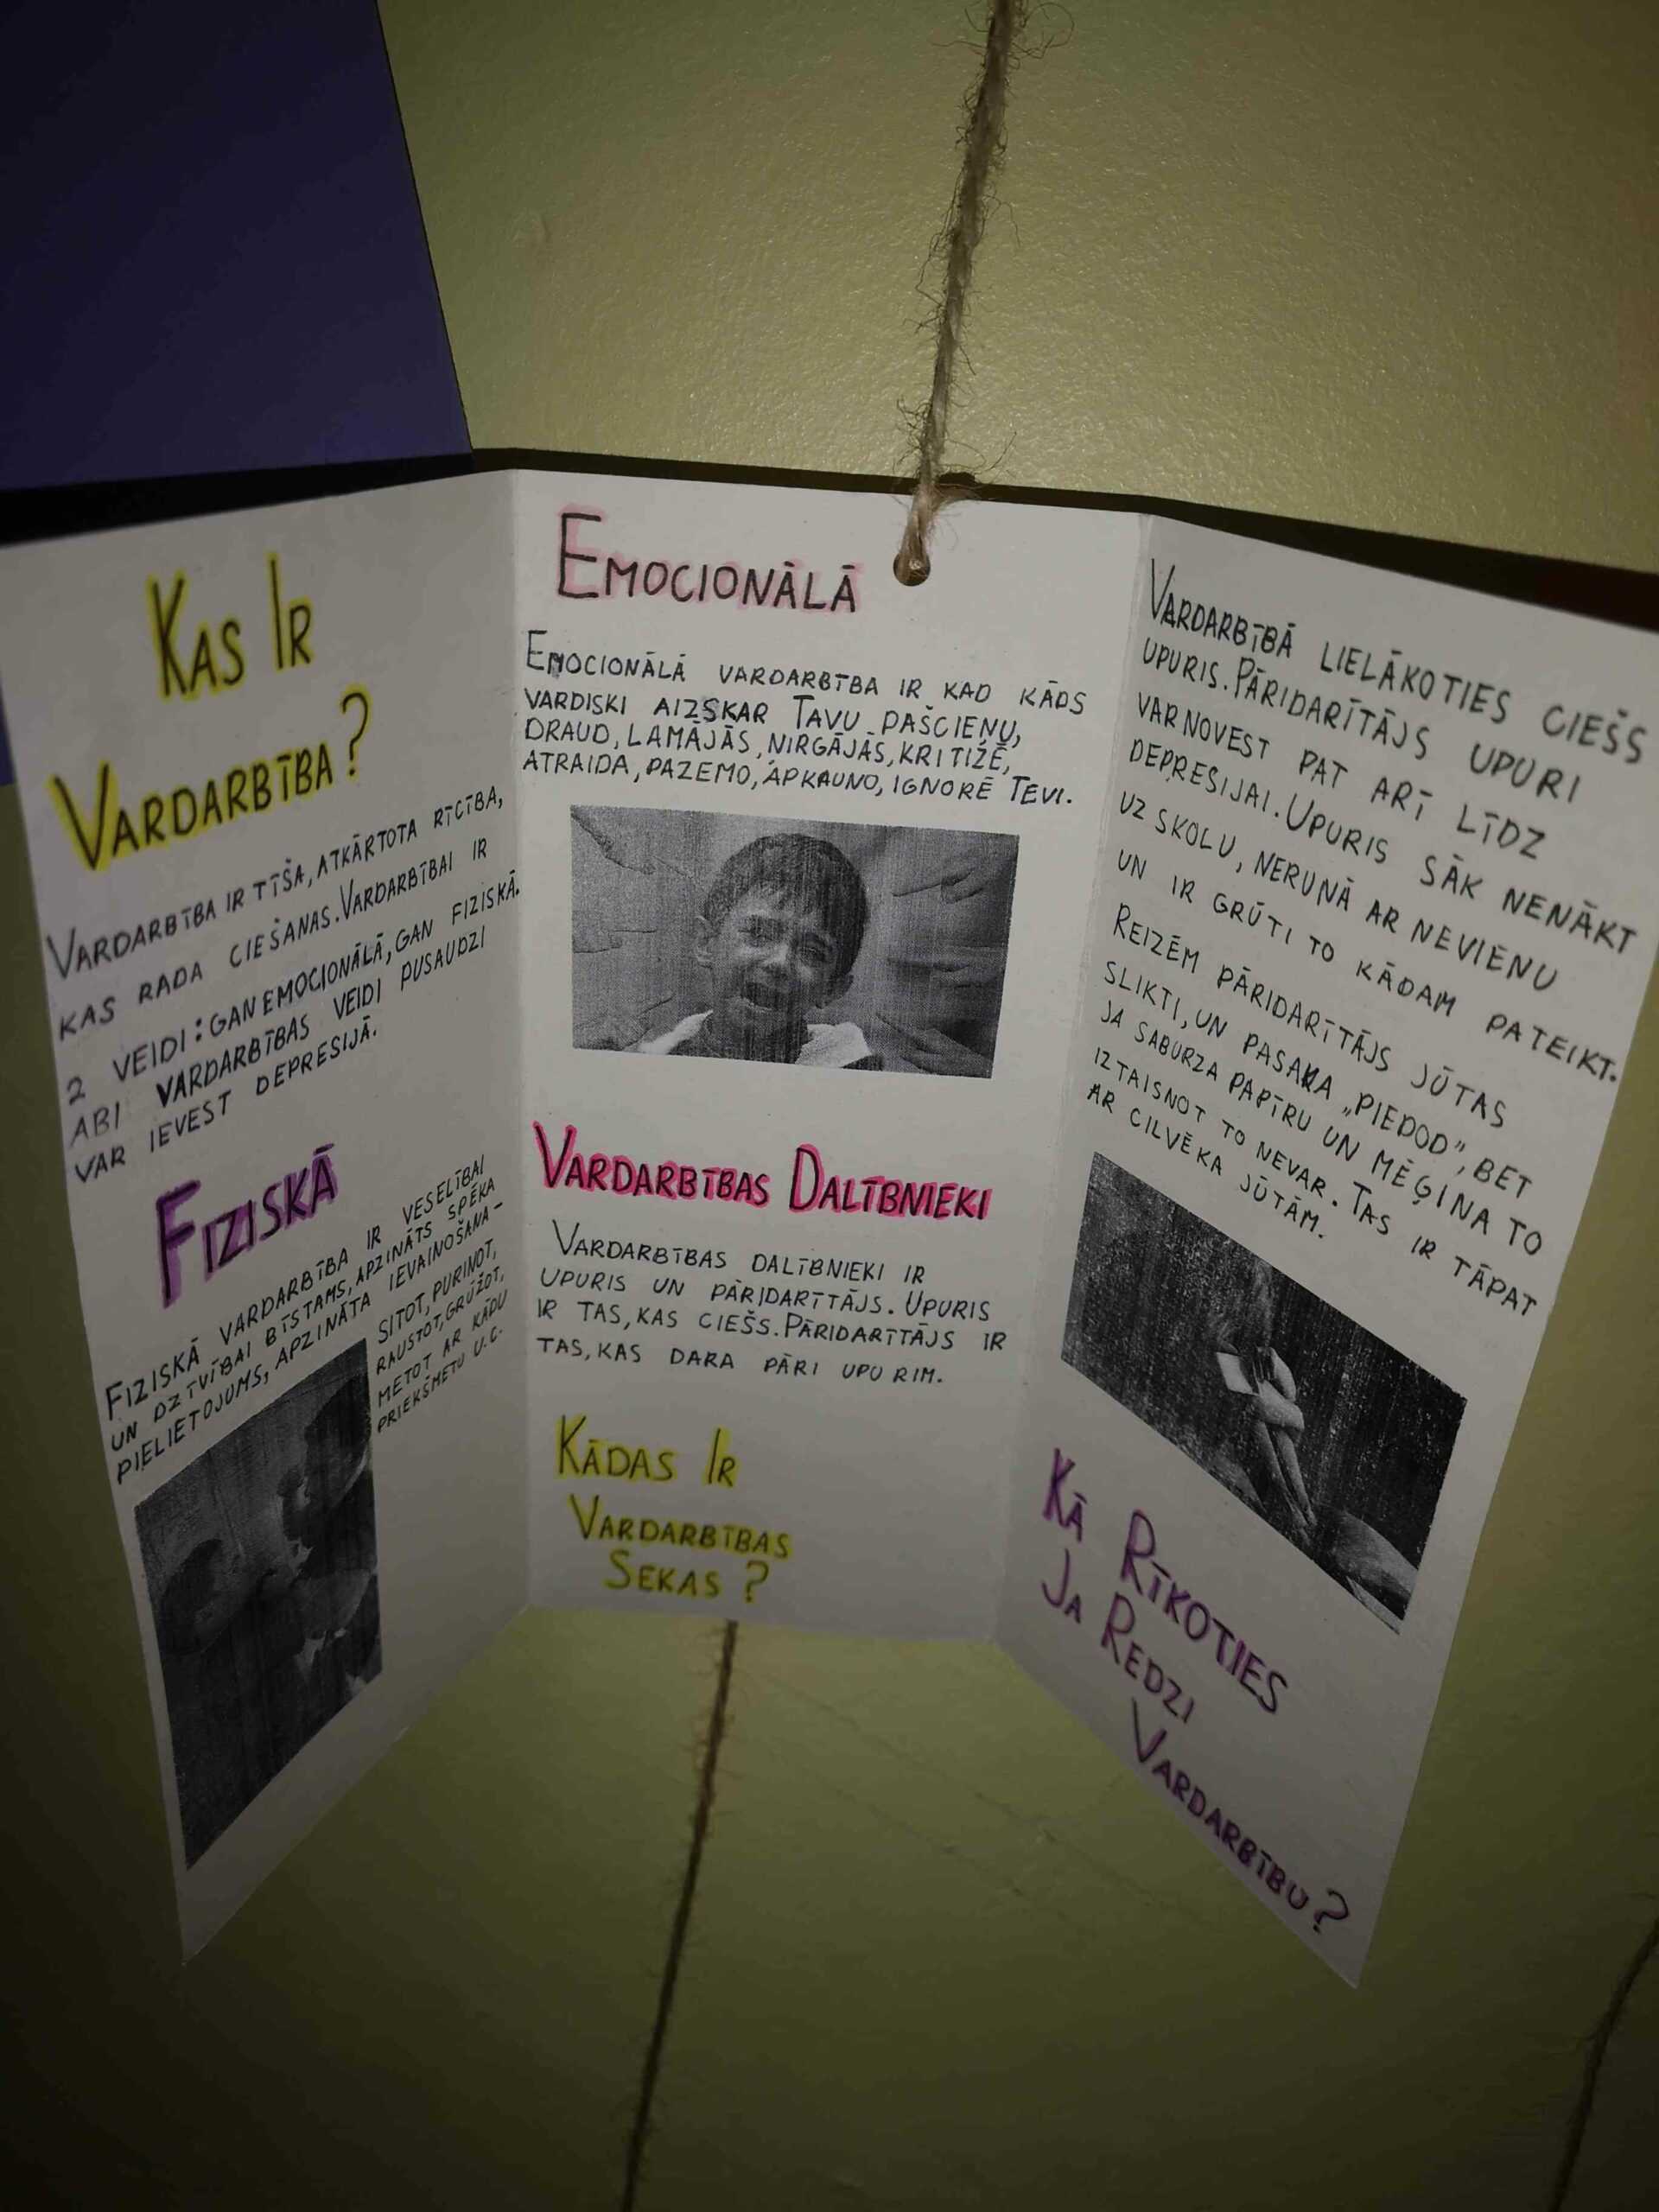 Kas Ir
Vardarbība?
Vardarbība ir tīša, atkārtota rīcība,
kas rada ciešanas. Vardarbībai ir
2 veidi: gan emocionālā, gan fiziskā.
Abi vardarbības veidi pusaudzi
var ievest depresijā.
Fiziskā
Fiziskā vardarbība ir veselībai
un dzīvībai bīstams, apzināts spēka
pielietojums, apzināta ievainošana-
sitot, purinot,
raustot, grūžot,
metot ar kādu
priekšmetu u.c.
Emocionālā
Emocionālā vardarbība ir kad kāds
vardiski aizskar Tavu pašcieņu,
draud, lamājās, ņirgājās, kritizē,
atraida, pazemo, apkauno, ignorē Tevi.
Vardarbības Dalībnieki
Vardarbības dalībnieki ir
upuris un pāridarītājs. Upuris
ir tas, kas ciešs. Pāridarītājs ir
tas, kas dara pāri upurim.
Kādas Ir
Vardarbības
Sekas?
Vardarbībā lielākoties ciešs
upuris. Pāridarītājs upuri
var novest pat arī līdz
depresijai. Upuris sāk nenākt
uz skolu, nerunā ar nevienu
un ir grūti to kādam pateikt.
Reizēm pāridarītājs jūtas
slikti, un pasaka „piedod", bet
ja saburza papīru un mēģina to
iztaisnot to nevar. Tas ir tāpat
ar cilvēka jūtām.
Kā Rīkoties
Ja Redzi
Vardarbību?